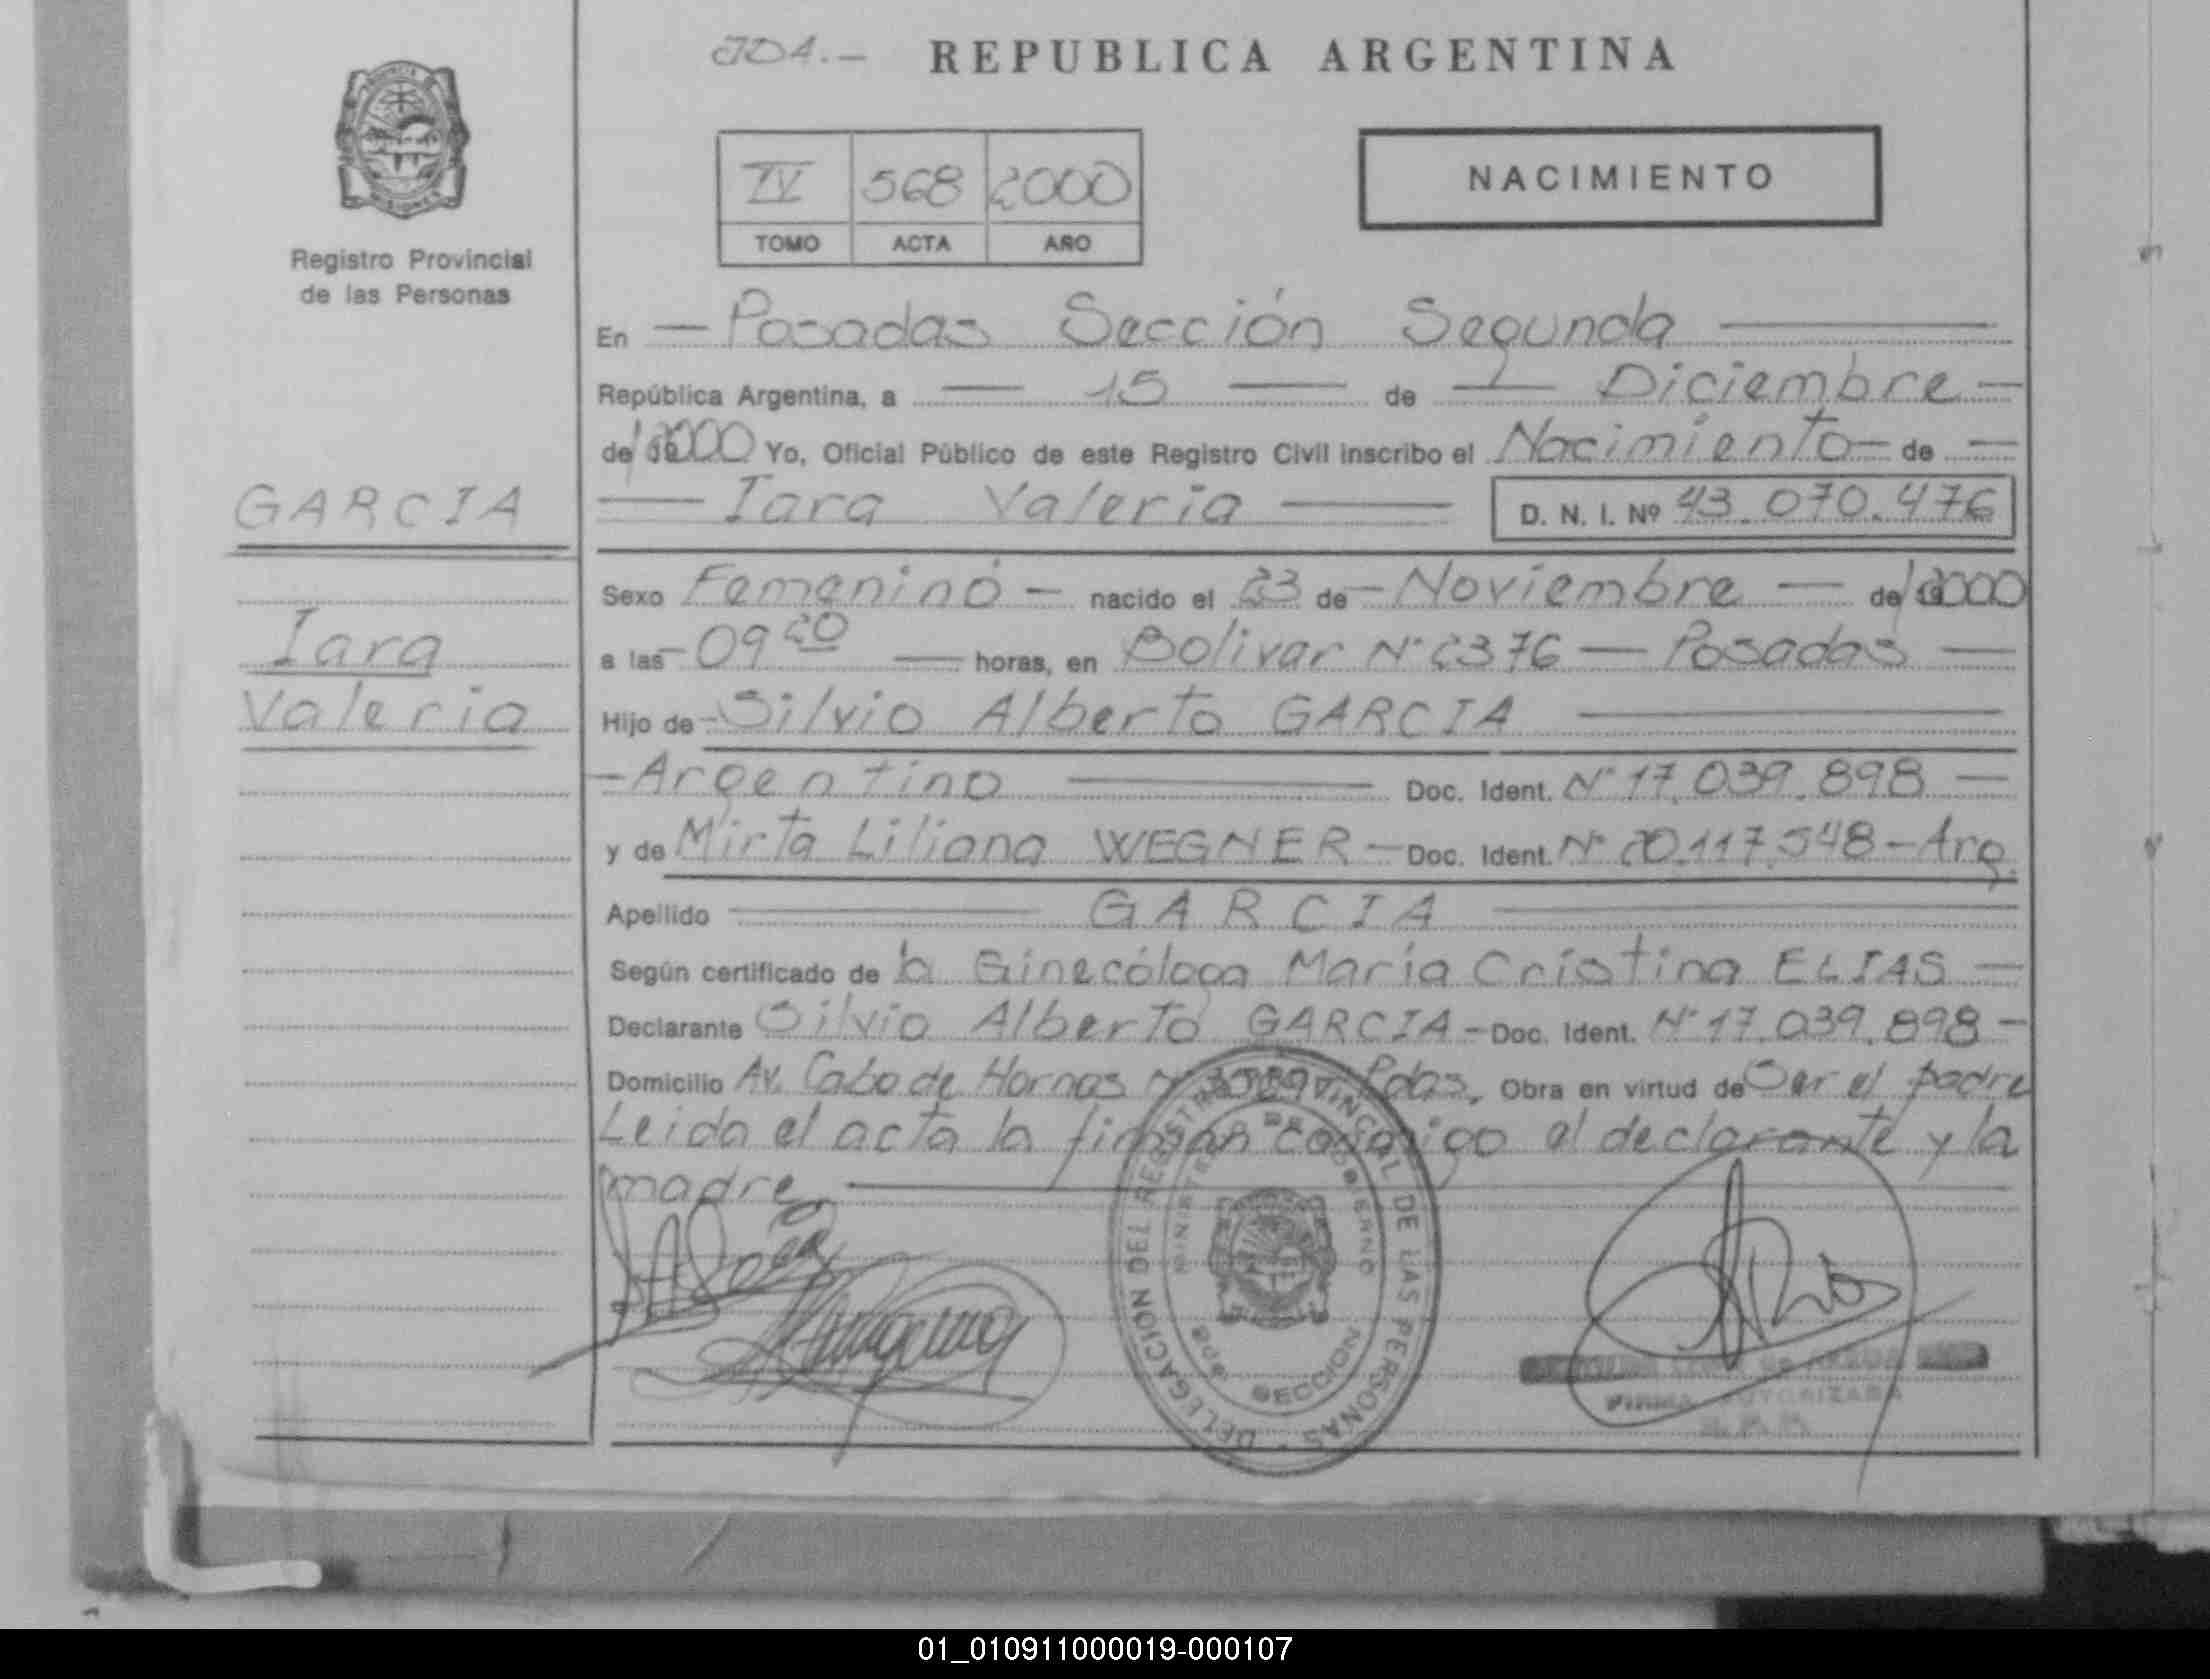 REPUBLICA ARGENTINA
MISIONES
Registro Provincial
de las Personas
IV 568 2000
TOMO ACTA AÑO
NACIMIENTO
En — Posadas Sección Segunda —
República Argentina, a — 15 — de — Diciembre —
de 2000 Yo, Oficial Público de este Registro Civil inscribo el Nacimiento — de —
— Iara Valeria — D. N. I. Nº 43.070.476
GARCIA
Iara
Valeria
Sexo Femenino — nacido el 23 de — Noviembre — de 2000
a las — 09 20 — horas, en Bolivar Nº 2376 — Posadas —
Hijo de — Silvio Alberto GARCIA —
— Argentino — Doc. Ident. Nº 17.039.898 —
y de Mirta Liliana WEGNER — Doc. Ident. Nº 20.117.548 — Arg.
Apellido — GARCIA —
Según certificado de la Ginecóloga María Cristina ELIAS —
Declarante Silvio Alberto GARCIA — Doc. Ident. Nº 17.039.898 —
Domicilio Av. Cabo de Hornos Nº Pdas. Obra en virtud de Ser el padre
Leida el acta la firman conmigo el declarante y la
madre. —
DELEGACION DEL REGISTRO PROVINCIAL DE LAS PERSONAS
MINISTERIO DE GOBIERNO
SECCION
FIRMA AUTORIZADA
01_010911000019-000107